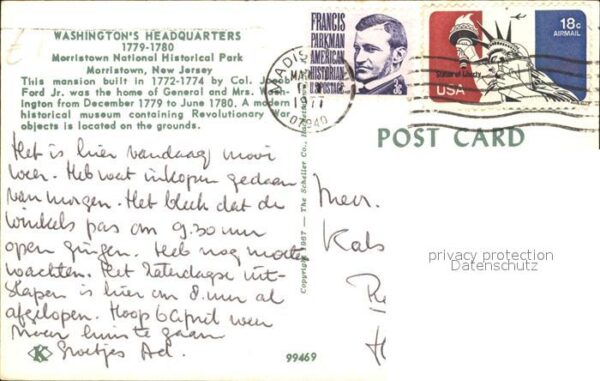 WASHINGTON'S HEADQUARTERS
1779-1780
Morristown National Historical Park
Morristown, New Jersey
This mansion built in 1772-1774 by Col. Jacob
Ford Jr. was the home of General and Mrs. Wash-
ington from December 1779 to June 1780. A modern
historical museum containing Revolutionary War
objects is located on the grounds.
FRANCIS
PARKMAN
AMERICAN
HISTORIAN
U.S. POSTAGE
3c
MADIS
07940
18c
AIRMAIL
Statue of Liberty
USA
POST CARD
Het is hier vandaag mooi
weer. Heb wat inkopen gedaan
van morgen. Het bleek dat de
winkels pas om 9.30 uur
open gingen. Heb nog moeten
wachten. Het Zaterdagse uit-
slapen is hier om 8 uur al
afgelopen. Hoop 6 april weer
naar huis te gaan
Groetjes Ad.
K
99469
Copyright 1967 — The Scheller Co.,
Mevr.
Kals
privacy protection
Datenschutz